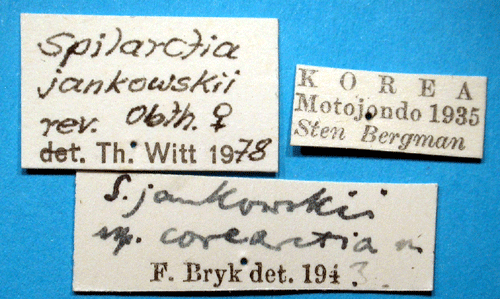 Spilarctia
jankowskii
rev. Obth. ♀
det. Th. Witt 1978
KOREA
Motojondo 1935
Sten Bergman
S. jankowskii
corearctia n
F. Bryk det. 194